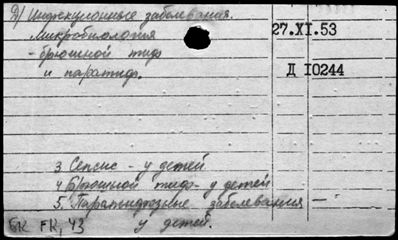 2) Инфекционные заболевания.
Микробиология
- брюшной тиф
и паратиф.
27.XI.53
Д 10244
3 Сепсис - у детей
4 Брюшной тиф - у детей
5. Паратифозные заболевания
у детей.
БК FK, 43